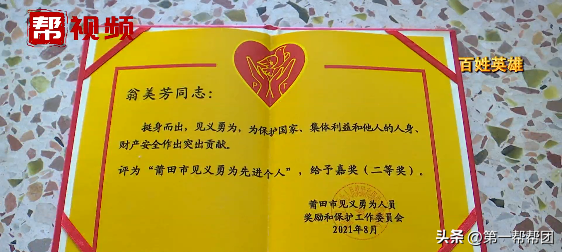 帮视频
百姓英雄
翁美芳同志：
挺身而出，见义勇为，为保护国家、集体利益和他人的人身、
财产安全作出突出贡献。
评为“莆田市见义勇为先进个人”，给予嘉奖（二等奖）。
莆田市见义勇为人员
奖励和保护工作委员会
2021年8月
头条 @第一帮帮团